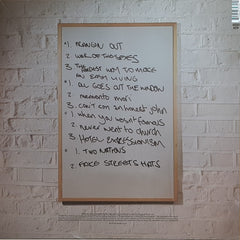 1. HANGIN OUT
2. WAR OF THE SEXES
3. THE HARDEST WAY TO MAKE
AN EASY LIVING
1. ALL GOES OUT THE WINDOW
2. memento mori
3. CAN'T CON AN HONEST JOHN
1. when you wasn't famous
2. never went to church
3. HOTEL EXPRESSIONISM
1. TWO NATIONS
2. FAKE STREETS HATS